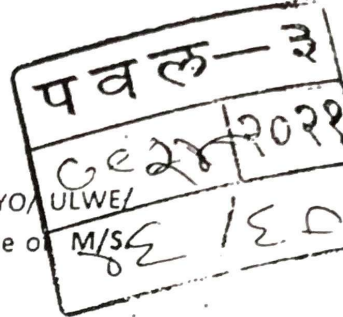 पवल-३
७८२४/२०२१
YO/ULWE/
e of M/S
४६/६०